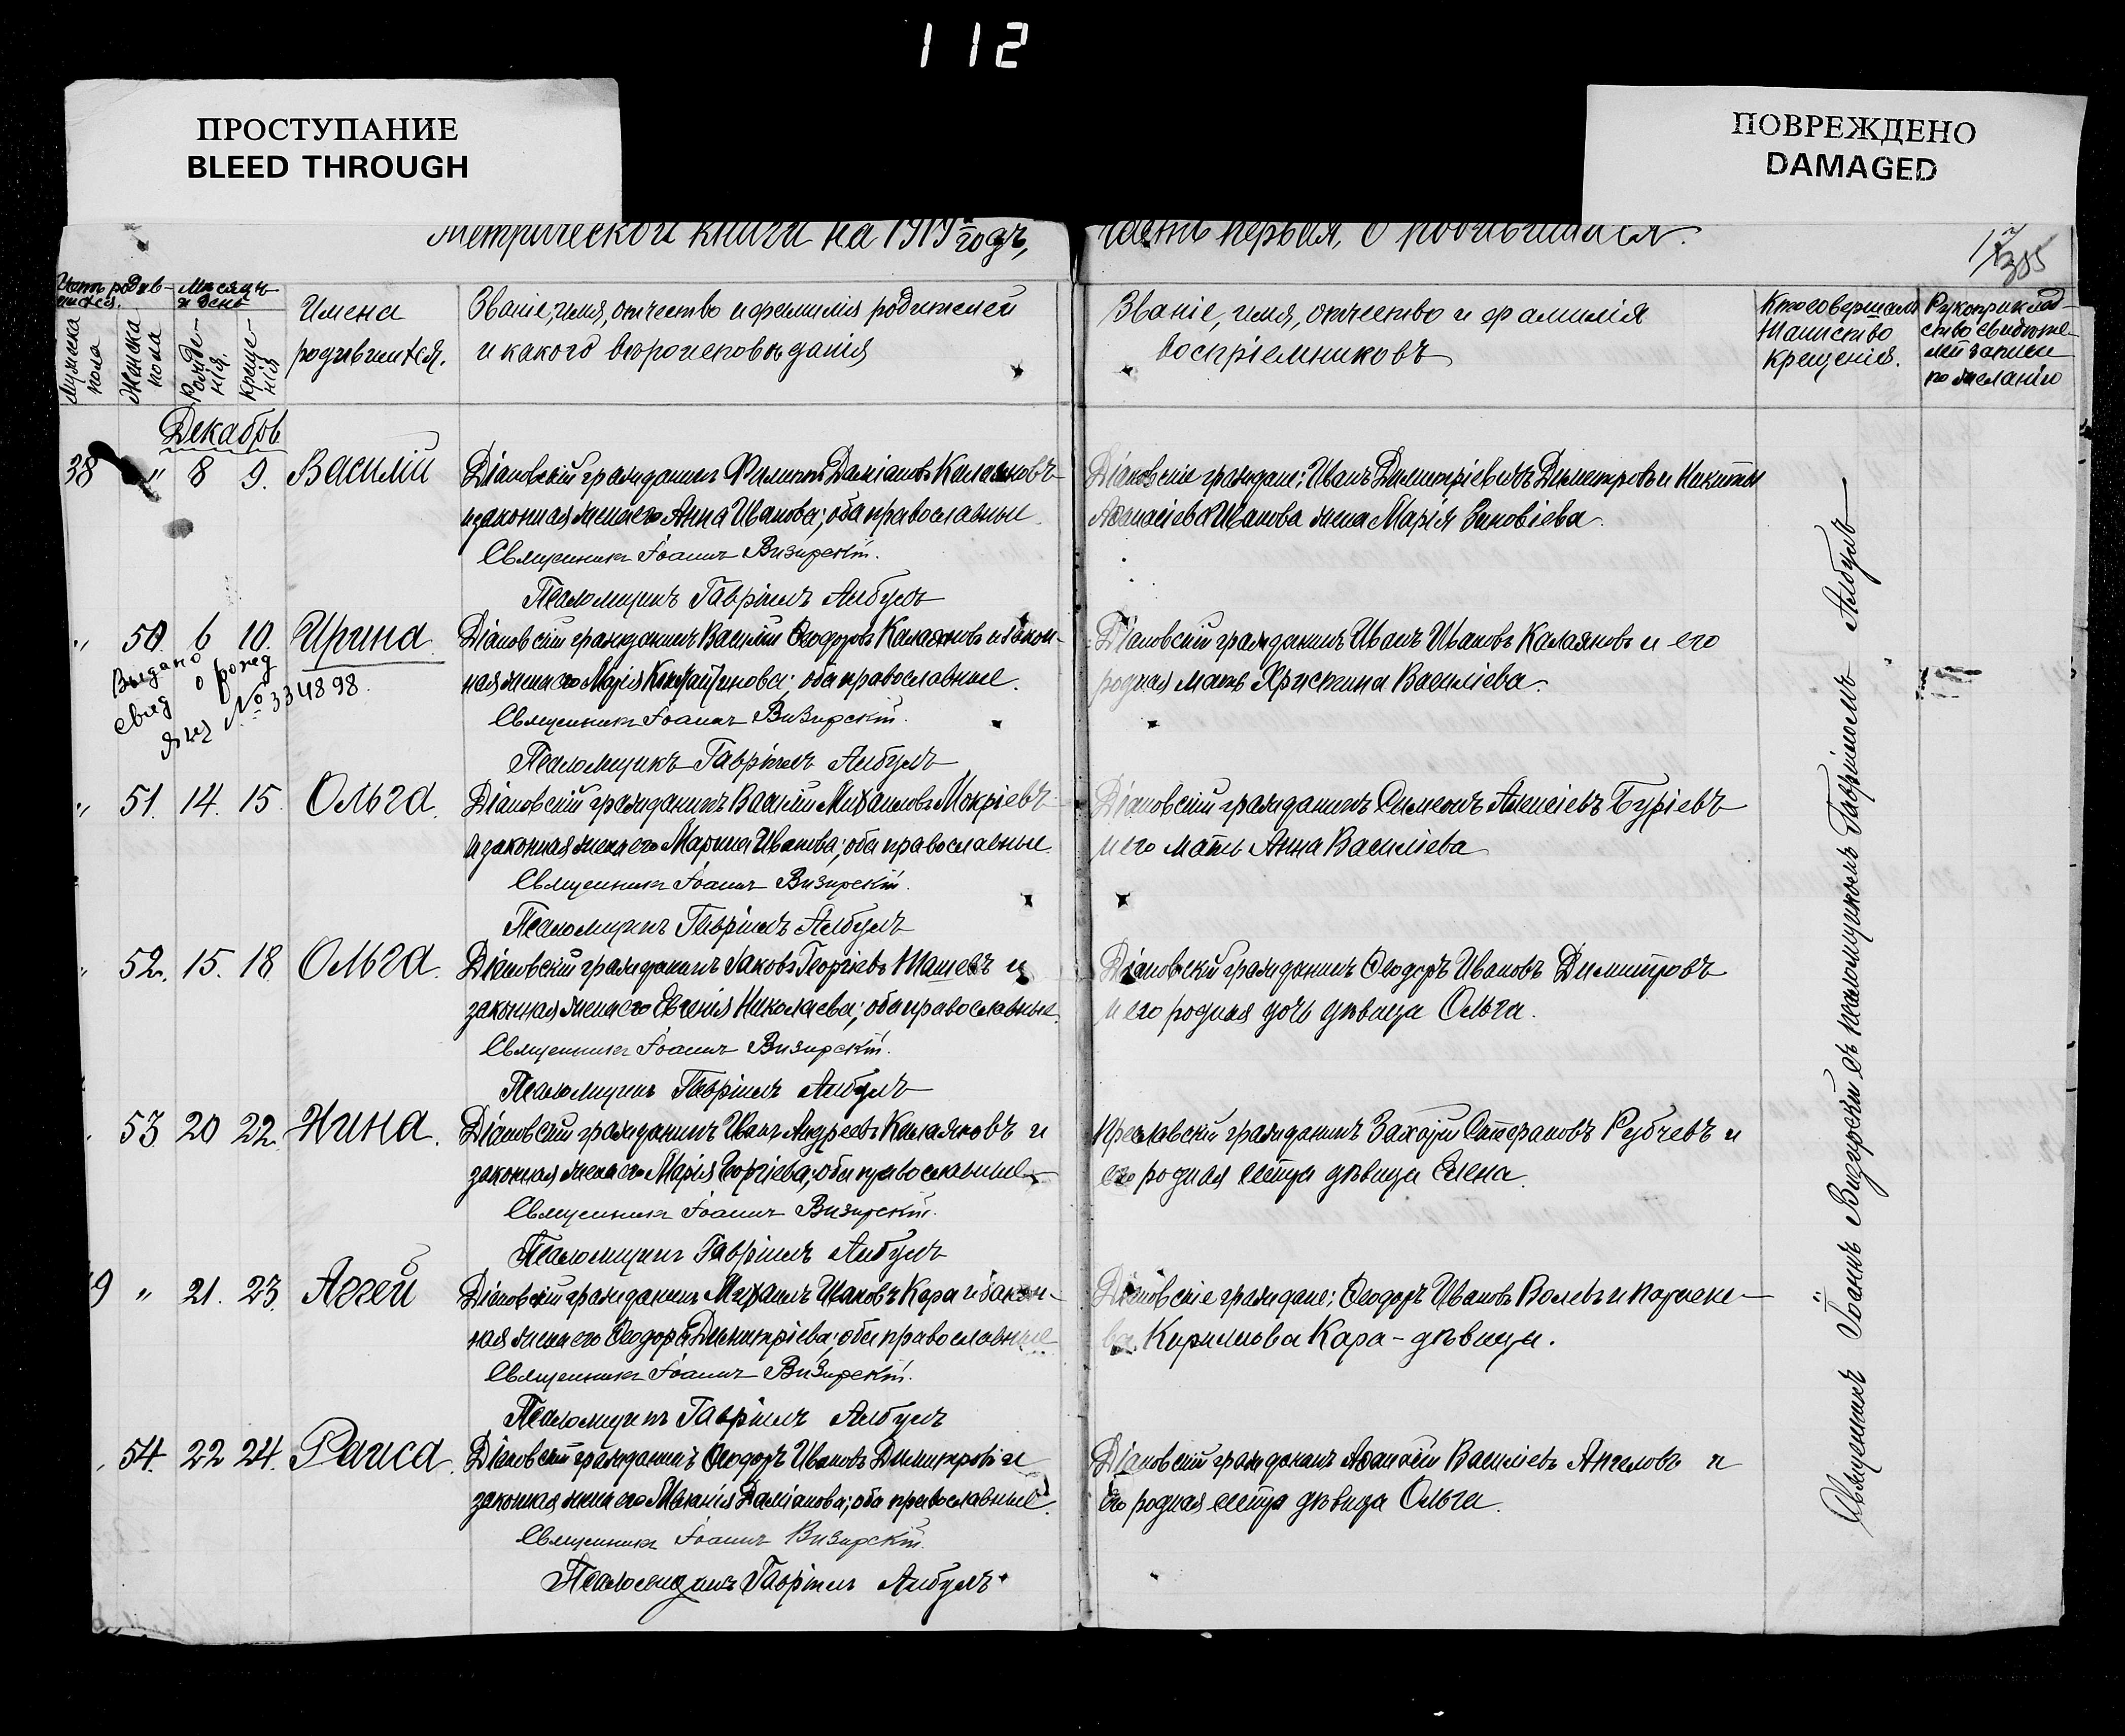 112
ПРОСТУПАНИЕ
BLEED THROUGH
ПОВРЕЖДЕНО
DAMAGED
Метрической книги на 1919 годъ,
часть первая, о родившихся.
385
Счетъ родив-
шихся.
Мужеска пола
Женска пола
Мѣсяцъ
и день
Рожде-
нія.
Креще-
нія
Имена
родившихся.
Званіе, имя, отчество и фамилія родителей
и какого вѣроисповѣданія
Званіе, имя, отчество и фамилія
воспріемниковъ
Кто совершалъ
таинство
крещенія.
Рукоприклад-
ство свидѣте-
лей записи
по желанію
Декабрь
38 " 8 9. Василій
Діановскій гражданинъ Филиппъ Даміановъ Калаяновъ
и законная жена его Анна Иванова; оба православные.
Священникъ Іоаннъ Визирскій.
Псаломщикъ Гавріилъ Албулъ
Діановскіе граждане: Иванъ Димитріевъ Димитровъ и Никиты
Аѳанасіева Иванова жена Марія Зиновіева.
" 50. 6 10. Ирина
Выдано
свид о рожд
Яну № 334898.
Діановскій гражданинъ Василій Ѳеодоровъ Калаяновъ и закон-
ная жена его Марія Константинова; оба православные.
Священникъ Іоаннъ Визирскій.
Псаломщикъ Гавріилъ Албулъ
Діановскій гражданинъ Иванъ Ивановъ Калаяновъ и его
родная мать Христина Василіева.
" 51. 14. 15. Ольга.
Діановскій гражданинъ Василій Михаиловъ Мокріевъ
и законная жена его Марина Иванова; оба православные.
Священникъ Іоаннъ Визирскій.
Псаломщикъ Гавріилъ Албулъ
Діановскій гражданинъ Симеонъ Алексіевъ Буріевъ
и его мать Анна Василіева
" 52. 15. 18. Ольга.
Діановскій гражданинъ Іаковъ Георгіевъ Ташевъ и
законная жена его Евгенія Николаева; оба православные.
Священникъ Іоаннъ Визирскій.
Псаломщикъ Гавріилъ Албулъ
Діановскій гражданинъ Ѳеодоръ Ивановъ Димитровъ
и его родная дочь дѣвица Ольга.
53 20 22. Нина.
Діановскій гражданинъ Иванъ Андреевъ Калаяновъ и
законная жена его Марія Георгіева; оба православные
Священникъ Іоаннъ Визирскій.
Псаломщикъ Гавріилъ Албулъ
Преславскій гражданинъ Стефановъ Рубчевъ и
его родная сестра дѣвица Елена.
9 " 21. 23. Аггей
Діановскій гражданинъ Михаилъ Ивановъ Кара и закон-
ная жена его Ѳеодора Димитріева; оба православные
Священникъ Іоаннъ Визирскій.
Псаломщикъ Гавріилъ Албулъ
Діановскіе граждане: Ѳеодоръ Ивановъ Волевъ и Параске-
ва Кириллова Кара - дѣвица.
54. 22 24. Раиса.
Діановскій гражданинъ Ѳеодоръ Ивановъ Димитровъ и
законная жена его Меланія Даміанова; оба православные.
Священникъ Іоаннъ Визирскій.
Псаломщикъ Гавріилъ Албулъ
Діановскій гражданинъ Аѳанасій Василіевъ Ангеловъ и
его родная сестра дѣвица Ольга.
Священникъ Іоаннъ Визирскій съ псаломщикомъ Гавріиломъ Албулъ